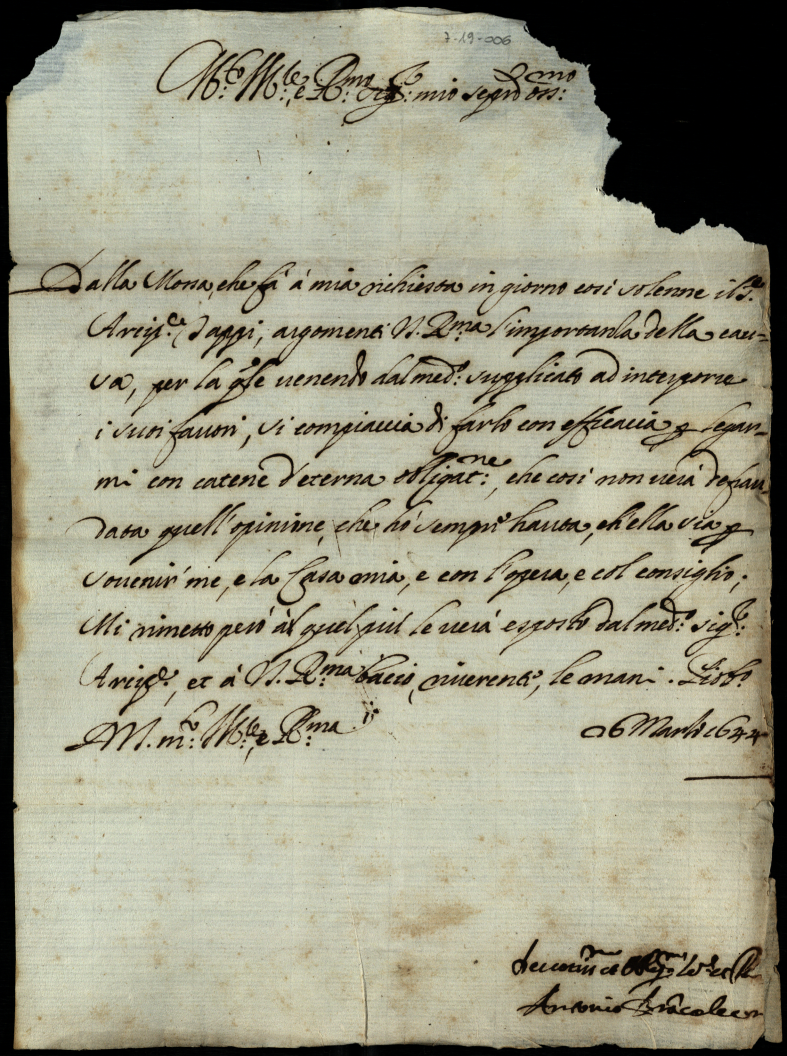 7-19-006
M.to Ill.re e R.mo Sig.r mio Segr.o oss.mo
Dalla Mossa, che fà à mia richiesta in giorno così solenne il S.r
Arcip.e Dappi, argomenti V. R.ma l'importanza della cau-
sa, per la q.le venendo dal med.o supplicato ad interporre
i suoi favori, si compiaccia di farlo con efficacia p legar-
mi con catene d'eterna obligat.ne, che così non verà defrau
data quell'opinione, che hò sempre hauta, ch'ella sia p
sovenir me, e la Casa mia, e con l'opera, e col consiglio;
Mi rimetto però à quel più le verà esposto dal med.o sig.r
Arcip.e, et à V. R.ma bacio, riverente, le mani.
D V. M.to Ill.re e R.ma 26 Marzo 1644
Antonio